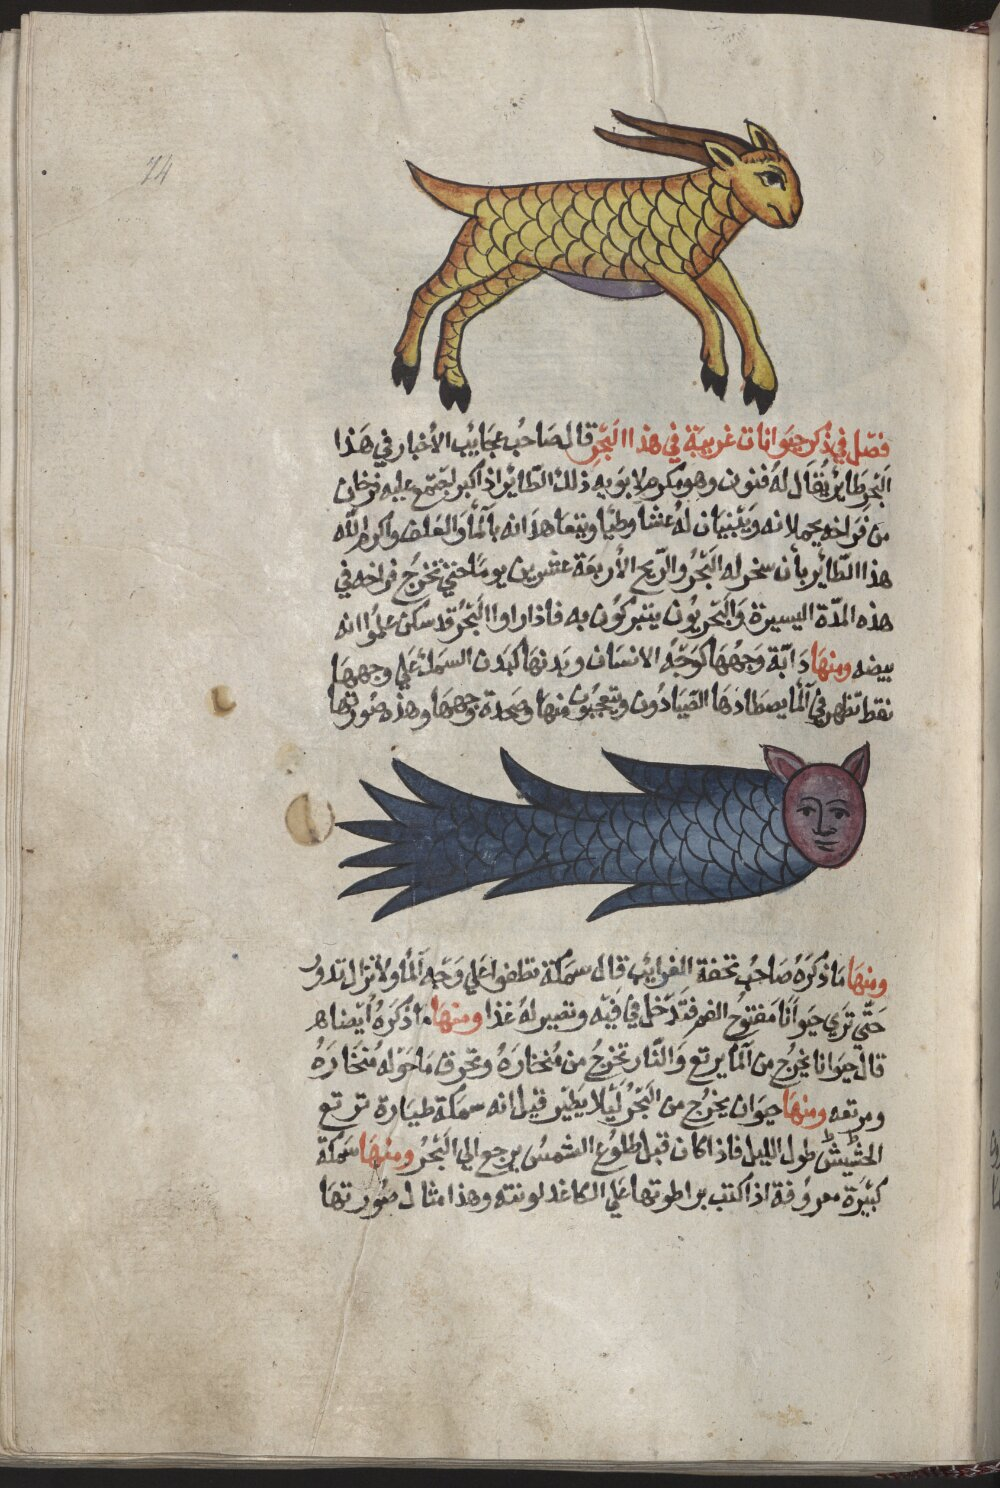 74
فصل في ذكر حيوانات غريبة في هذا البحر قال صاحب عجايب الأخبار في هَذا
البحر طاير يُقال لهُ فنون وهو مكرم لابويه ذلك الطايرُ اذا كبر يجتمع عليه فرخان
من فراخه يحملانه ويبنيان لهُ عشًا وطيًا ويتعاهدانه بالمآ والعَلف واكرم الله
هذا الطاير بأن سخر له البَحْر والريح الأربعَة عشرين يومًا حتى تخرج فراخه في
هذه المدّة اليسيرة وَالبَحريون يتبركون به فاذا راوا البَحْر قد سكن علمُوا انه
بيضه ومنهَا دَابّة وَجهُهَا كوَجْهِ الانسَان وبَدنهَا كبَدن السمك عَلي وجههَا
نقط تظهر في المآ يصطادهَا الصّيادُون ويتعجبُون منها وصحة وَجههَا وهذه صُورتها
ومنهَا مَا ذكرَهُ صَاحبُ تحفة الغرايب قال سمَكة تطفوا عَلي وَجْه المآ ولا تزال تدور
حَتّي تري حيَوانًا مَفتوحُ الفم فتدْخل في فيْه وتصير لهُ غذا ومنها مَا ذكرهُ أيضا هـ
قال حيوانا يخرج من المآ يرتع وَالنّار تخرجُ من مُنخارَهُ وتحرق مَا حَوْله مُنخَارَهُ
ومرتعه ومنهَا حيوان يخرُج من البَحْر ليْلا يَطيْر قيل انه سمَكة طيارة ترتع
الحَشِيْش طول الليل فاذا كان قبل طلوع الشمسُ يرجع الي البَحْر ومنهَا سمَكة
كبيْرة معروُفة اذا كتب بمراطوتها عَلي الكاغد لونته وهذا مثال صُورتهَا